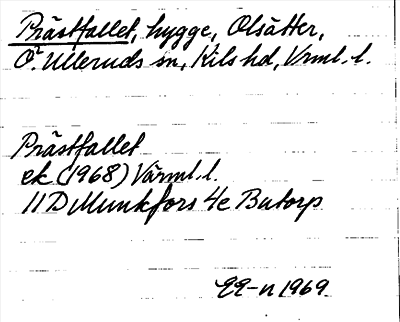 Prästfallet, hygge, Olsätter,
Ö. Ulleruds sn, Kils hd, Vrml. l.
Prästfallet
ek. (1968) Värml. l.
11 D Munkfors 4e Butorp
1969